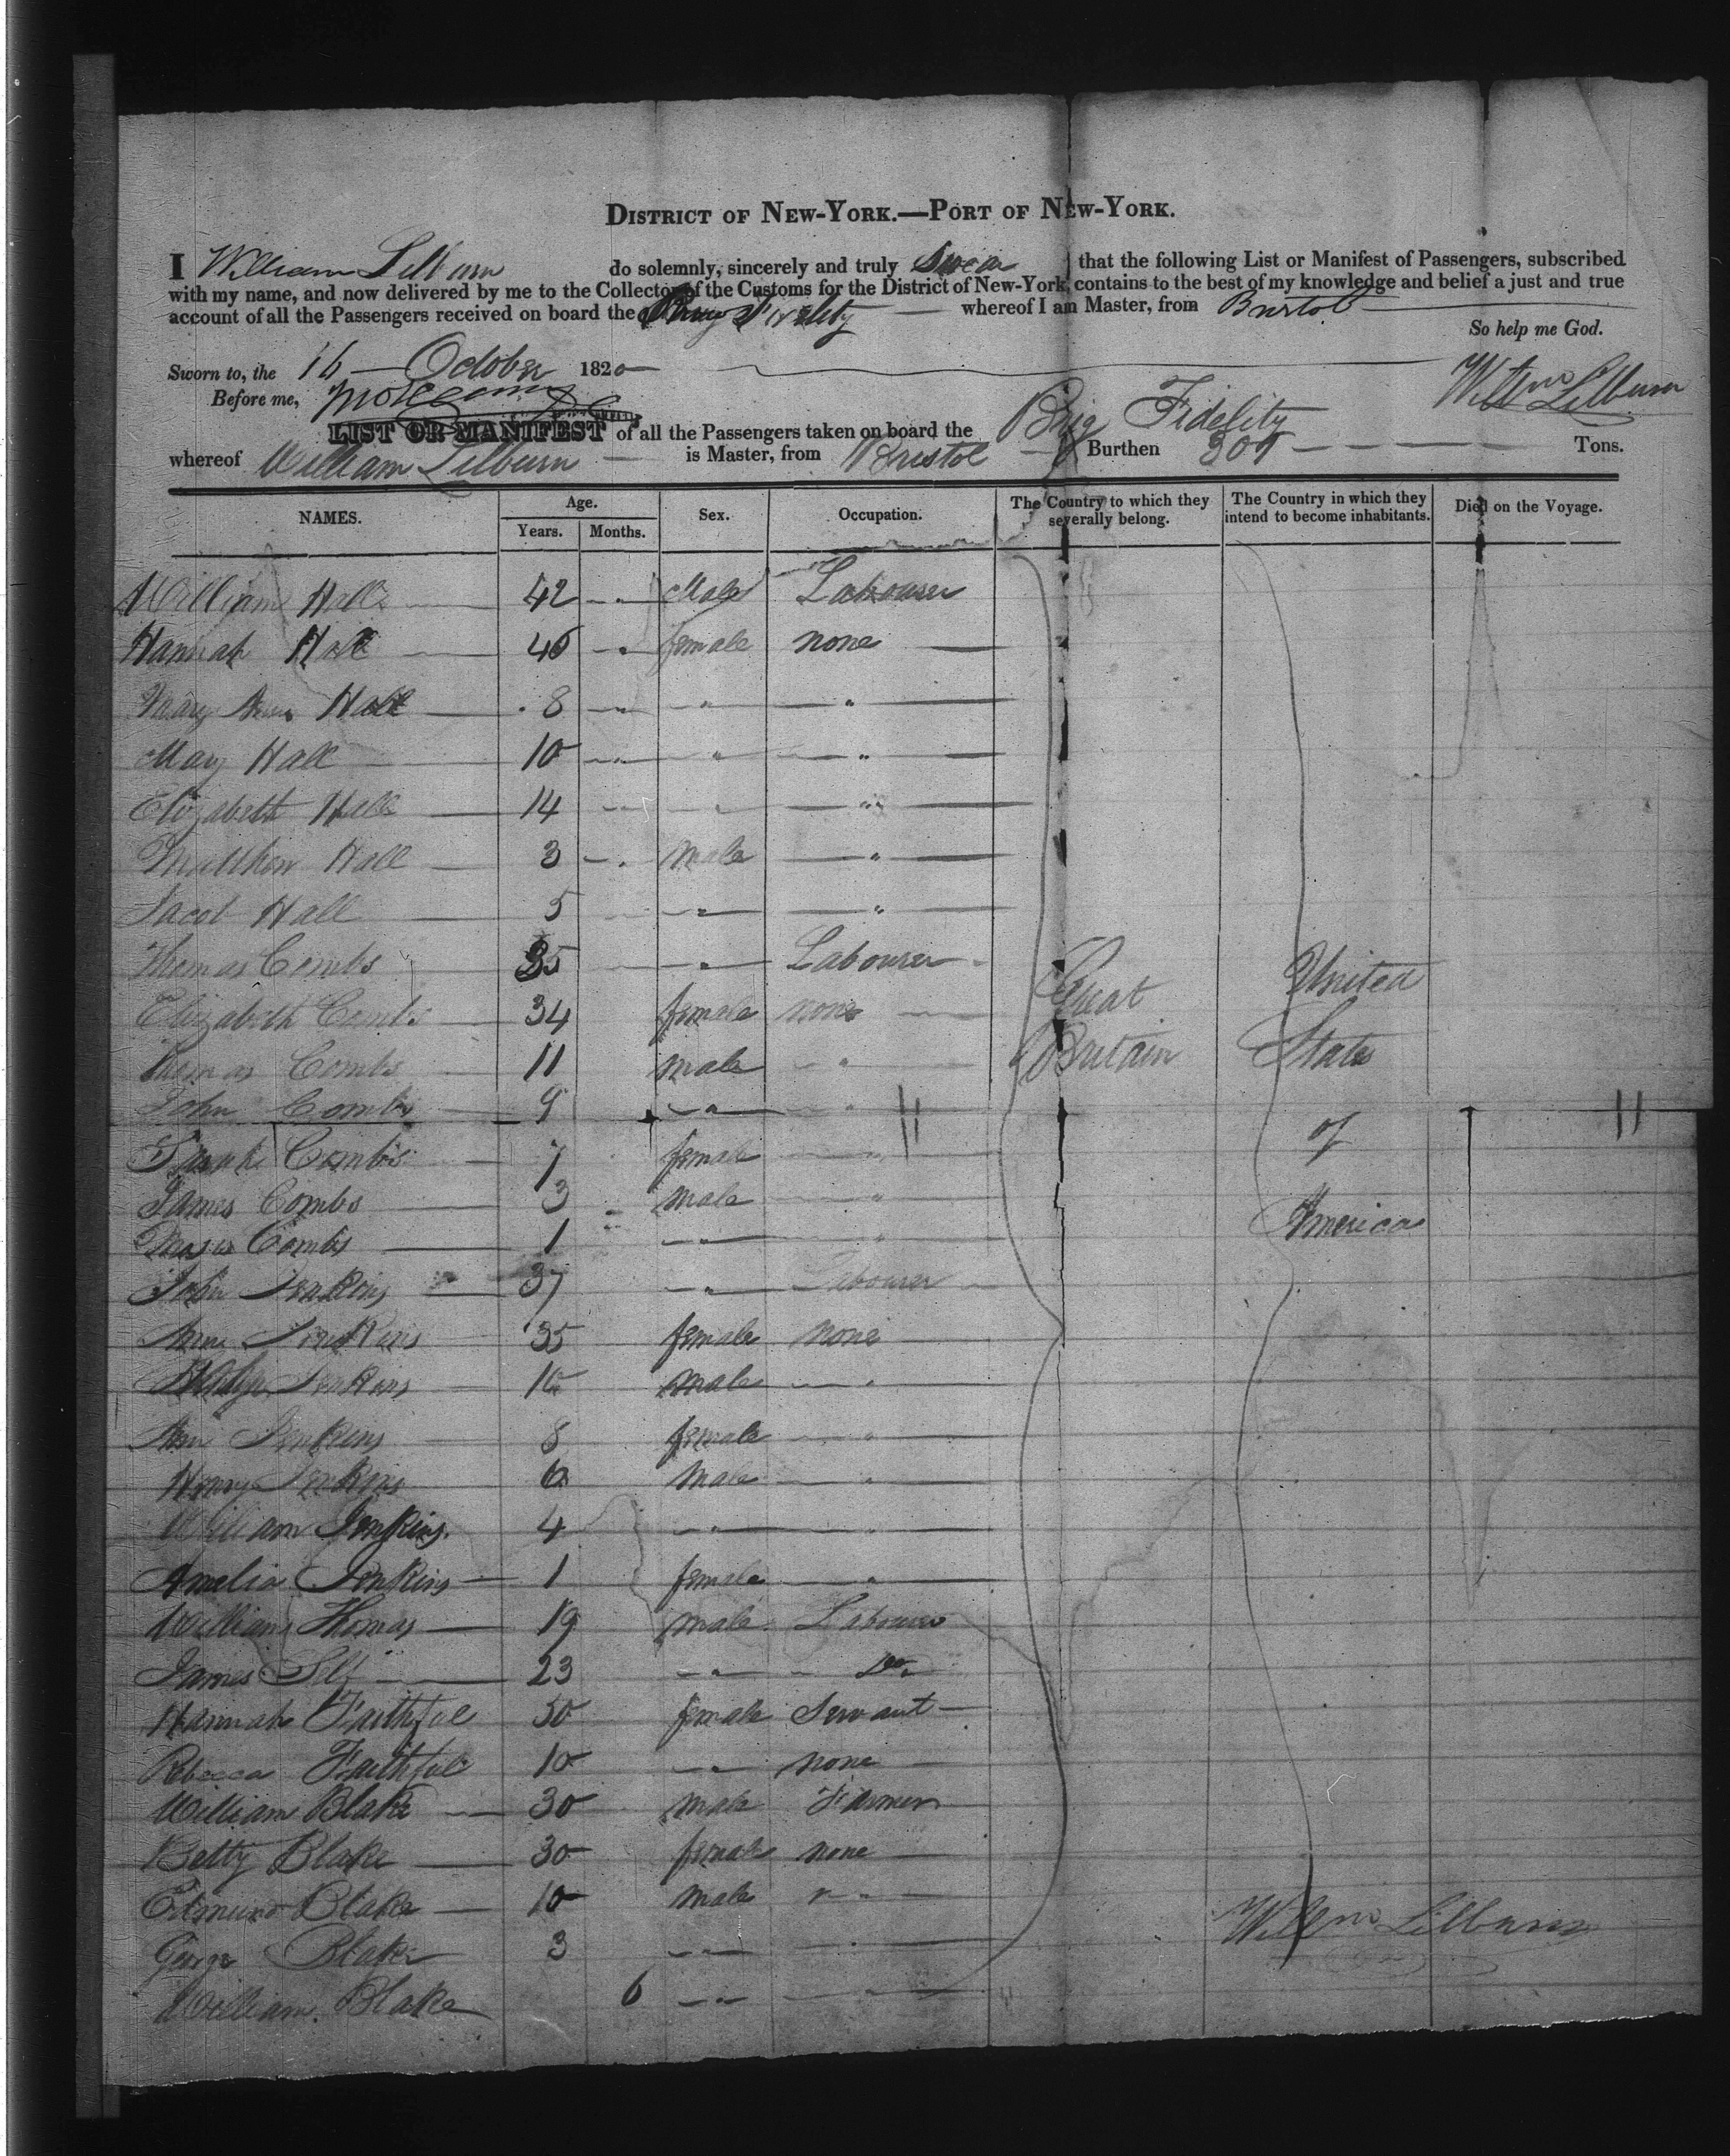 DISTRICT OF NEW-YORK.—PORT OF NEW-YORK.
I William Lilburn do solemnly, sincerely and truly Swear that the following List or Manifest of Passengers, subscribed
with my name, and now delivered by me to the Collector of the Customs for the District of New-York, contains to the best of my knowledge and belief a just and true
account of all the Passengers received on board the Brig Fidelity whereof I am Master, from Bristol
So help me God.
Sworn to, the 16 October 1820
Before me,
Willm Lilburn
LIST OR MANIFEST of all the Passengers taken on board the Brig Fidelity
whereof William Lilburn is Master, from Bristol Burthen Tons.
NAMES. Age. Years. Months. Sex. Occupation. The Country to which they severally belong. The Country in which they intend to become inhabitants. Died on the Voyage.
William Hall 42 Male Labourer
Hannah Hall female none
Mary Ann Hall 8 " "
Mary Hall 10 " "
Elizabeth Hall 14 " "
Matthew Hall 3 male "
Jacob Hall 5 " "
Thomas Combs 35 " Labourer Great United
Elizabeth Combs 34 female none
Thomas Combs 11 male " Britain States
John Combs 9 " "
Combs 7 female " of
James Combs 3 male "
Moses Combs 1 " " America
John Jenkins 37 " Labourer
Ann Jenkins 35 female none
Jenkins male "
Ann Jenkins 8 female "
Henry Jenkins 6 male "
William Jenkins. 4 " "
Amelia Jenkins 1 female "
William Thomas 19 male Labourer
James Self 23 " Do
Hannah Faithful 50 female Servant
Rebecca Faithful 10 " none
William Blake 30 male Farmer
Betty Blake 30 female none
Edmund Blake 10 male "
George Blake 3 "
William Blake 6 "
Willm Lilburn